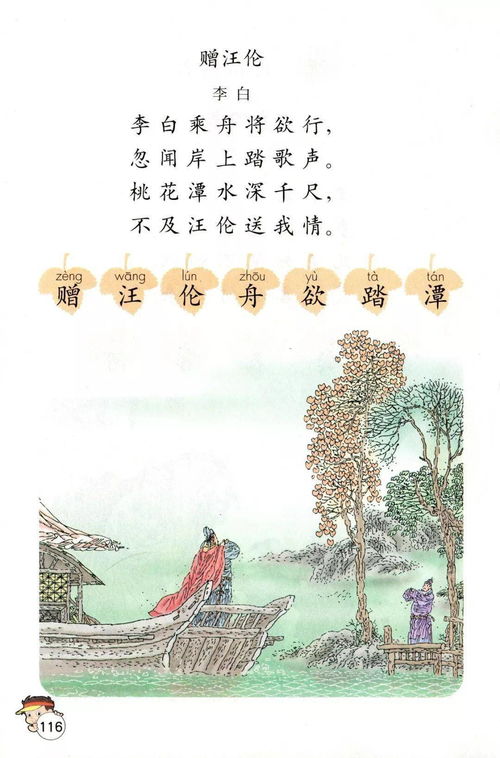 赠汪伦
李白
李白乘舟将欲行,
忽闻岸上踏歌声。
桃花潭水深千尺,
不及汪伦送我情。
zèng wāng lún zhōu yù tà tán
赠 汪 伦 舟 欲 踏 潭
116